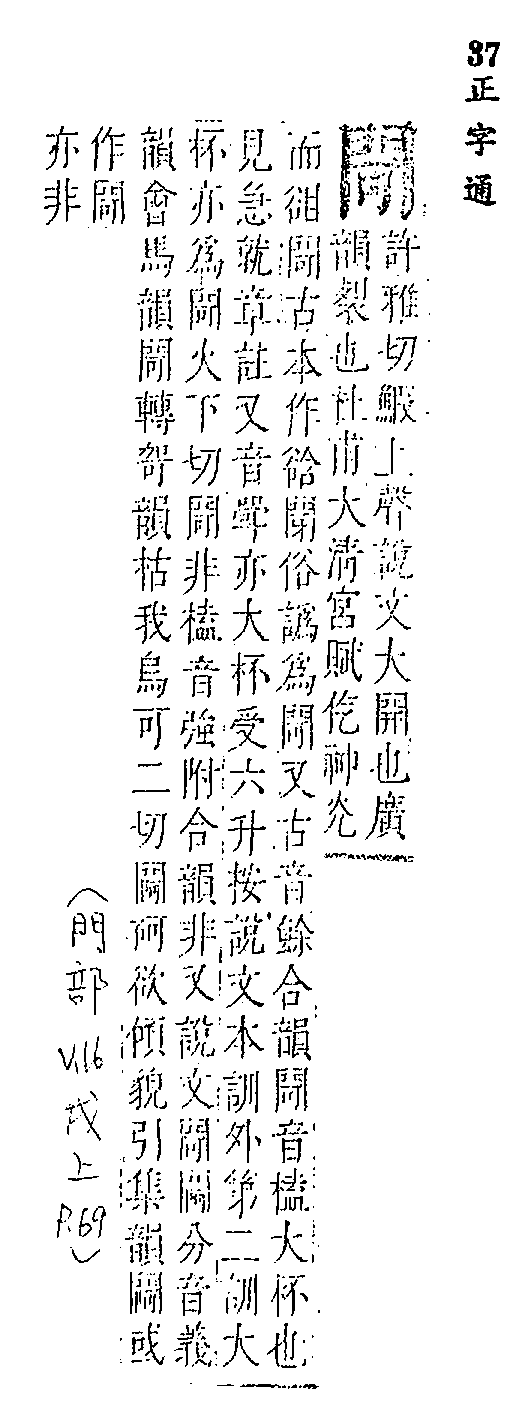 37 正字通
閜 許雅切鰕上聲說文大開也廣
韻裂也杜甫大清宮賦仡神光
而閜古本作谽俗譌為閜又古音餘合韻閜音榼大杯也
見急就章註又音斝亦大杯受六升按說文本訓外第二訓大
杯亦為閜火下切閜非榼音強附合韻非又說文閜䦪分音義
韻會馬韻閜轉哿韻枯我烏可二切䦪欲傾貌引集韻䦪或
作閜
亦非
(門部 V.16 戌上 P.69)